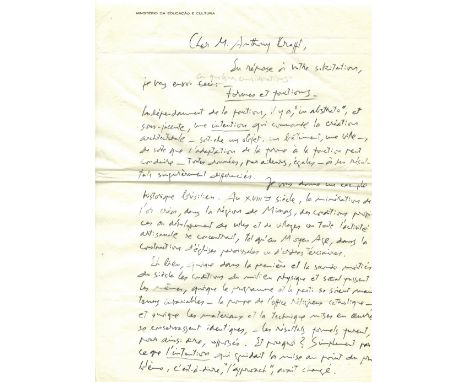 MINISTÉRIO DA EDUCAÇÃO E CULTURA
Cher M. Anthony Krafft,
En réponse à votre sollicitation,
ces quelques considérations
je vous envoi ceci:
Formes et fonctions.
Indépendamment de la fonction, il y a, "in abstracto", et
sous-jacente, une intention qui commande la création
architecturale – soit-ce un objet, un bâtiment, une ville –,
de sorte que l'adaptation de la forme à la fonction peut
conduire – toutes données, par ailleurs, égales – à des résul-
tats singulièrement différenciés.
Je vous donne un exemple
historique brésilien. Au XVIIIe siècle, la minération de
l'or créa, dans la région de Minas, des conditions propi-
ces au développement de villes et de villages où toute l'activité
artisanale se concentrait, tel qu'au Moyen Age, dans la
construction d'églises paroissiales ou d'ordres tertiaires.
Et bien, – quoique dans la première et la seconde moitiés
du siècle les conditions du milieu physique et social fussent
les mêmes, quoique le programme et le parti se soient main-
tenus invariables – la pompe de l'office religieux catholique – et
et quoique les matériaux et la technique mises en œuvre
se conservassent identiques, – les résultats formels furent,
pour ainsi dire, opposés. Et pourquoi? Simplement par
ce que l'intention qui guidait la mise au point du pro-
blème, c'est-à-dire, "l'approach", avait changé.